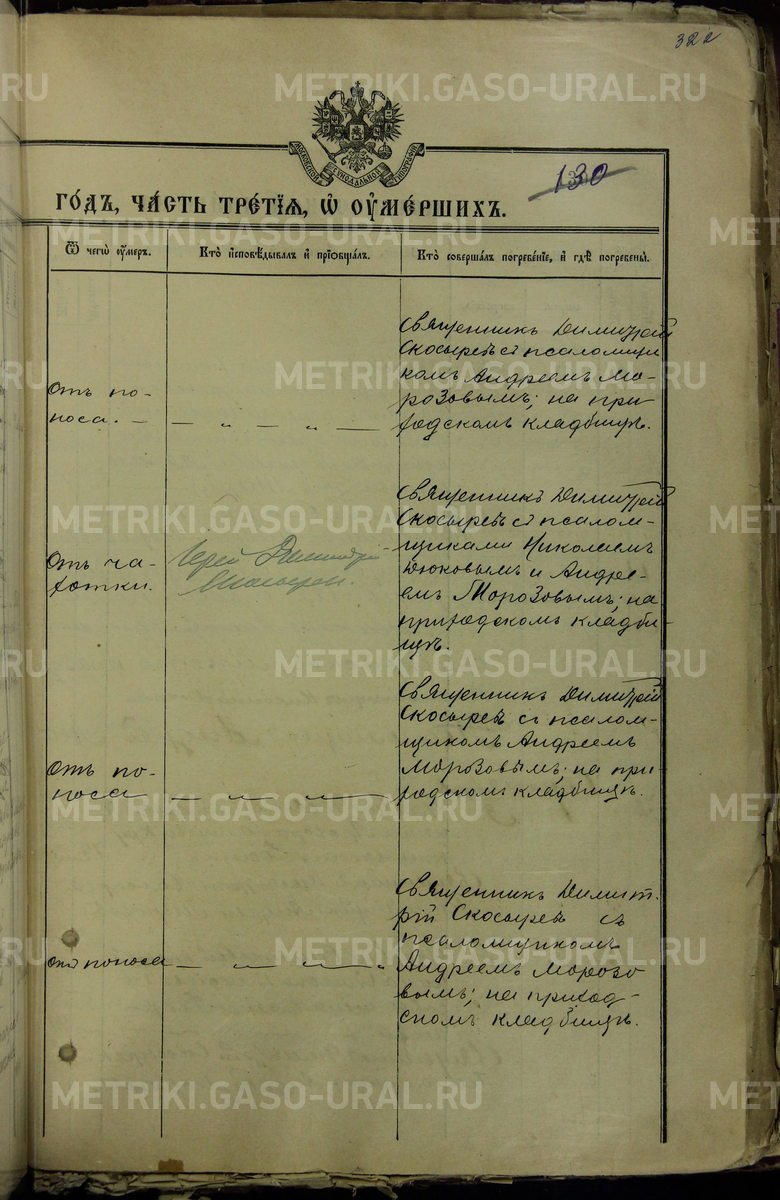 322
130
МОСКОВСКОЙ СѴНОДАЛЬНОЙ ТИПОГРАФІИ
ГО́ДЪ, ЧА́СТЬ ТРЕ́ТІѦ, Ѡ҆ ОУ҆МЕ́РШИХЪ.
Ѿ чегѡ̀ оу҆́меръ.
Кто̀ и҆сповѣ́дывалъ и҆ прїѡбща́лъ.
Кто̀ соверша́лъ погребе́нїе, и҆ гдѣ̀ погребены̀.
отъ по-
носа. —
— „ — „ —
Священникъ Димитрій
Скосыревъ съ псаломщи
комъ Андреемъ Мо-
розовымъ; на при-
ходскомъ кладбищѣ.
отъ ча-
хотки.
Іерей Димитрій
Скосыревъ.
Священникъ Димитрій
Скосыревъ съ псалом-
щиками Николаемъ
Дюковымъ и Андре-
емъ Морозовымъ; на
приходскомъ кладби-
щѣ.
отъ по-
носа
— „ — „ —
Священникъ Димитрій
Скосыревъ съ псалом-
щикомъ Андреемъ
Морозовымъ; на при-
ходскомъ кладбищѣ.
отъ поноса
— „ — „ — „
Священникъ Димит-
рій Скосыревъ съ
псаломщикомъ
Андреемъ Морозо
вымъ; на приход-
скомъ кладбищѣ.
METRIKI.GASO-URAL.RU